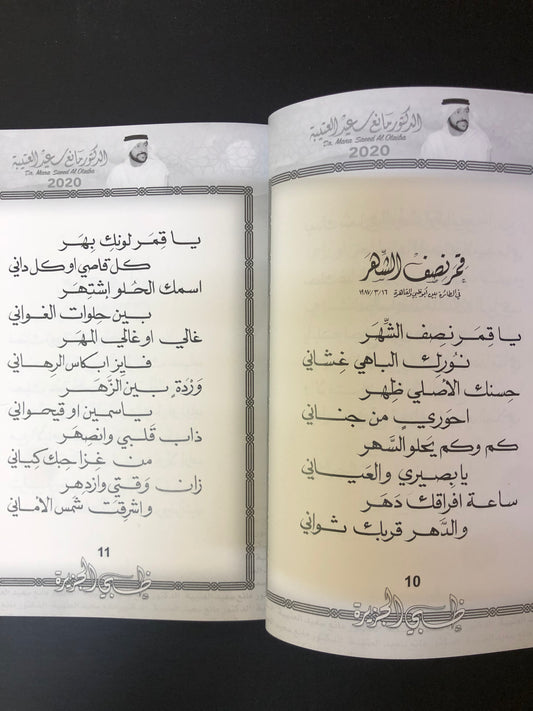 الدكتور مانع سعيد العتيبة
Dr. Mana Saeed Al Otaiba
2020
قمر نصف الشهر
في الطائرة بين أبوظبي والقاهرة ١٩٨٧/٣/١٦
يا قمَر نصِف الشّهَر
نُورِك الباهي غِشاني
حِسنك الأصلي ظِهر
احوَريٍ من جِناني
كم وكم يَحلو السَّهر
يا بصيري والعَياني
ساعة افراقك دَهَر
والدَّهر قربك ثواني
10
ظبي الجزيرة
الدكتور مانع سعيد العتيبة
Dr. Mana Saeed Al Otaiba
2020
يا قمَر لونك بِهَر
كل قاصي او كل داني
اسمك الحلو إشتِهر
بين حِلوات الغواني
غالي او غالي المهَر
فايز ابكاس الرهاني
وَرْدَةٍ بين الزَهَر
ياسمين او قيحواني
ذاب قلبي وانصِهَر
من غزا حبك كياني
زان وَقتي وازدهر
واشرِقت شمس الأماني
11
ظبي الجزيرة